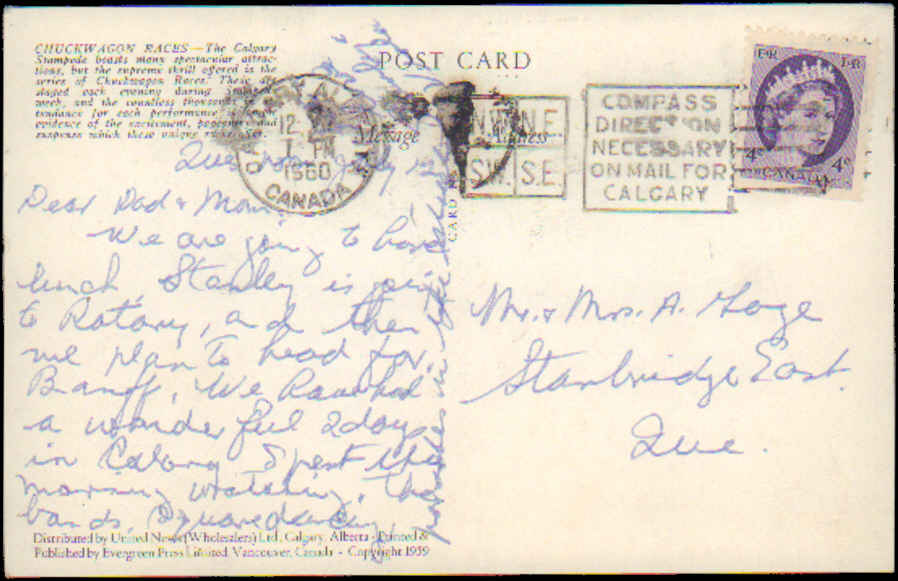 CHUCKWAGON RACES—The Calgary
Stampede boasts many spectacular attrac-
tions, but the supreme thrill offered is the
series of Chuckwagon Races. These are
staged each evening during Stampede
week, and the countless thousands in at-
tendance for each performance is ample
evidence of the excitement, pageantry and
suspense which these unique races offer.
POST CARD
Message
Address
CALGARY ALTA
12
1 PM
1960
CANADA
N.W. N.E.
S.W. S.E.
COMPASS
DIRECTION
NECESSARY
ON MAIL FOR
CALGARY
E II R E II R
4c 4c
CANADA
CARD
Tues noon July 12
Dear Dad & Mom
We are going to have
lunch Stanley is going
to Rotary, and then
we plan to head for
Banff. We have had
a wonderful 2 days
in Calgary Spent this
morning watching, the
bands, Square dancing,
Mr. & Mrs. A. Gage
Stanbridge East.
Que.
Distributed by United News (Wholesalers) Ltd., Calgary, Alberta - Printed &
Published by Evergreen Press Limited, Vancouver, Canada - Copyright 1959